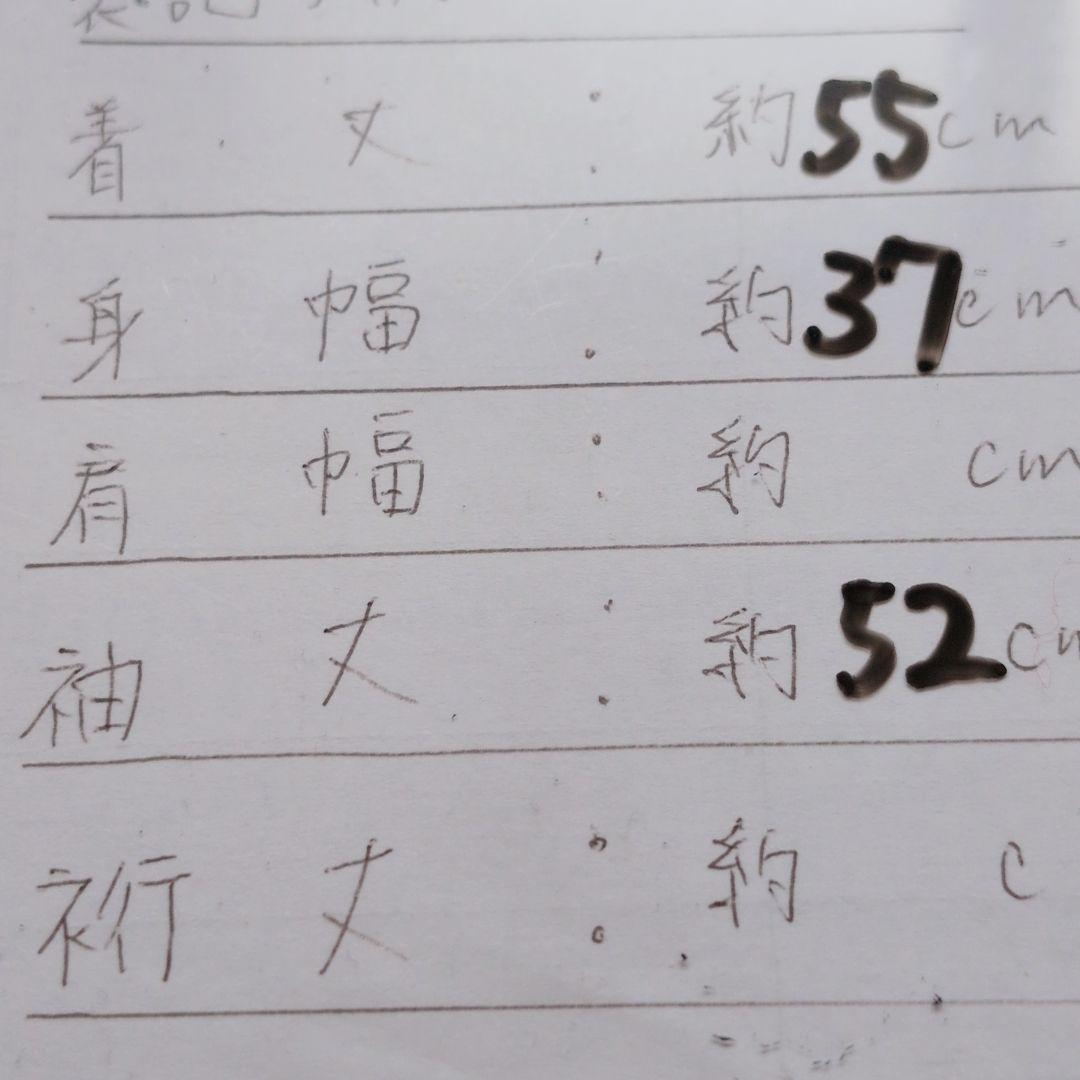 着 丈 : 約55cm
身 幅 : 約37cm
肩 幅 : 約 cm
袖 丈 : 約 52cm
裄 丈 : 約 c